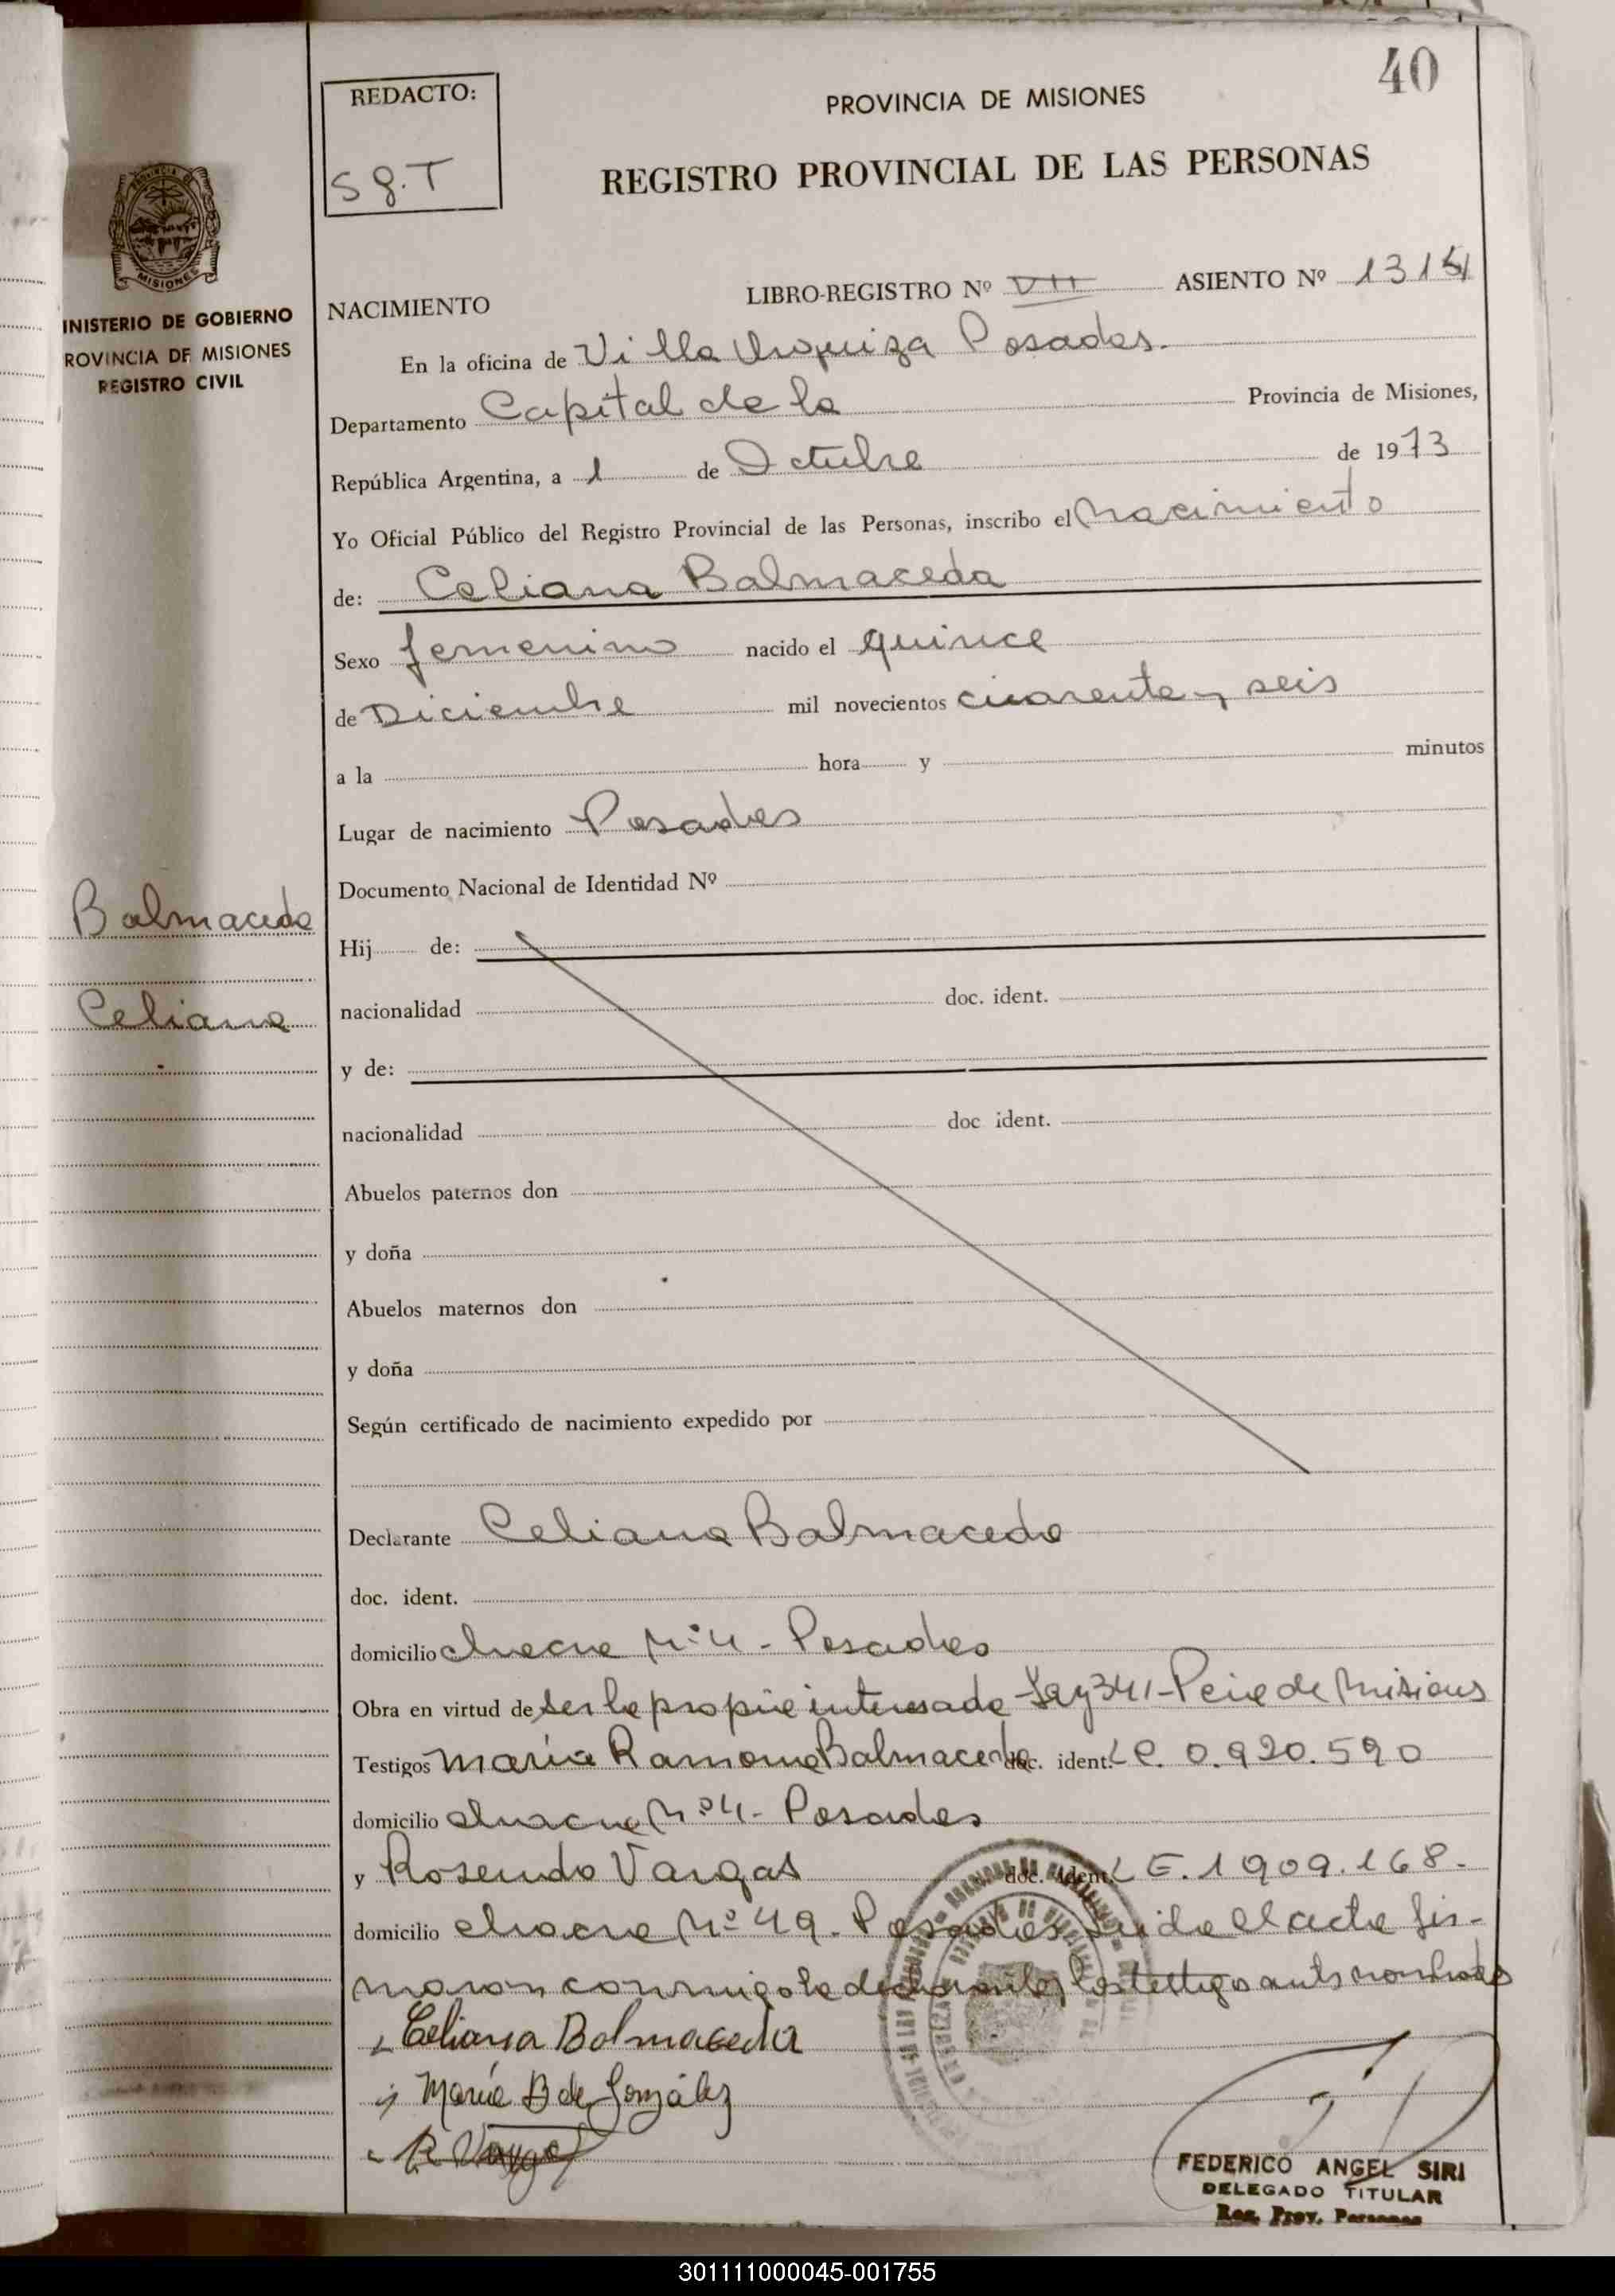 40
REDACTO:
S g. T
PROVINCIA DE MISIONES
REGISTRO PROVINCIAL DE LAS PERSONAS
MISIONES
INISTERIO DE GOBIERNO
ROVINCIA DE MISIONES
REGISTRO CIVIL
NACIMIENTO
LIBRO-REGISTRO Nº VII ASIENTO Nº 1314
En la oficina de Villa Urquiza Posadas.
Departamento Capital de la Provincia de Misiones,
República Argentina, a 1 de Octubre de 1973
Yo Oficial Público del Registro Provincial de las Personas, inscribo el Nacimiento
de: Celiana Balmaceda
Sexo femenino nacido el quince
de Diciembre mil novecientos cuarenta y seis
a la hora y minutos
Lugar de nacimiento Posadas
Documento Nacional de Identidad Nº
Balmaceda
Hij de:
Celiana
nacionalidad doc. ident.
y de:
nacionalidad doc ident.
Abuelos paternos don
y doña
Abuelos maternos don
y doña
Según certificado de nacimiento expedido por
Declarante Celiana Balmaceda
doc. ident.
domicilio chacra Nº 4 - Posadas
Obra en virtud de ser la propia interesada - Ley 341 - Pcia de Misiones
Testigos María Ramona Balmaceda doc. ident. L C. 0.920.590
domicilio chacra Nº 4 - Posadas
y Rosendo Vargas doc. ident. L E. 1909.168.
domicilio chacra Nº 49 - Posadas Leida el acta fir-
maron conmigo la declarante y los testigos antes nombrados
Celiana Balmaceda
María B de González
R Vargas
FEDERICO ANGEL SIRI
DELEGADO TITULAR
Reg. Prov. Personas
301111000045-001755